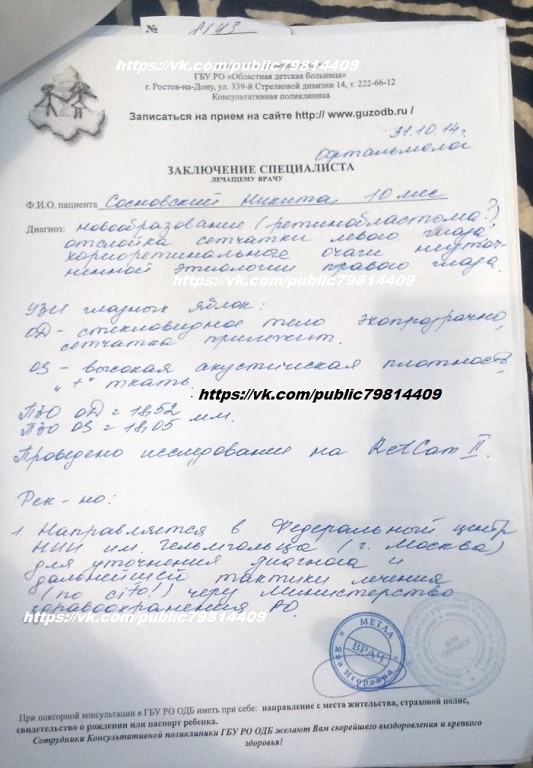 № А143
https://vk.com/public79814409
ГБУ РО «Областная детская больница»
г. Ростов-на-Дону, ул. 339-й Стрелковой дивизии 14, т. 222-66-12
Консультативная поликлиника
Записаться на прием на сайте http:// www.guzodb.ru /
31.10.14г.
Офтальмолог
ЗАКЛЮЧЕНИЕ СПЕЦИАЛИСТА
ЛЕЧАЩЕМУ ВРАЧУ
Ф.И.О. пациента Сосновский Никита 10 мес
Диагноз: новообразование (ретинобластома?)
отслойка сетчатки левого глаза,
хориоретинальные очаги неуточ-
ненной этиологии правого глаза.
https://vk.com/public79814409
УЗИ глазных яблок:
OD - стекловидное тело эхопрозрачно,
сетчатка прилежит.
OS - высокая акустическая плотность,
"+" ткань.
https://vk.com/public79814409
ПЗО OD = 18,52
ПЗО OS = 18,05 мм.
Проведено исследование на RetCam II.
Рек-но:
1. Направляется в Федеральный центр
НИИ им. Гельмгольца (г. Москва)
для уточнения диагноза и
дальнейшей тактики лечения
(по cito!) через Министерство
здравоохранения РО.
https://vk.com/public79814409
МЕТЛА
ВРАЧ
При повторной консультации в ГБУ РО ОДБ иметь при себе: направление с места жительства, страховой полис,
свидетельство о рождении или паспорт ребенка.
Сотрудники Консультативной поликлиники ГБУ РО ОДБ желают Вам скорейшего выздоровления и крепкого
здоровья!